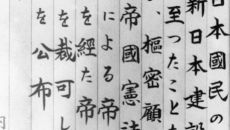 日本國民の
新日本建設
至ったこと
、樞密顧
帝國憲法
による帝
を經た帝
を裁可し
を公布